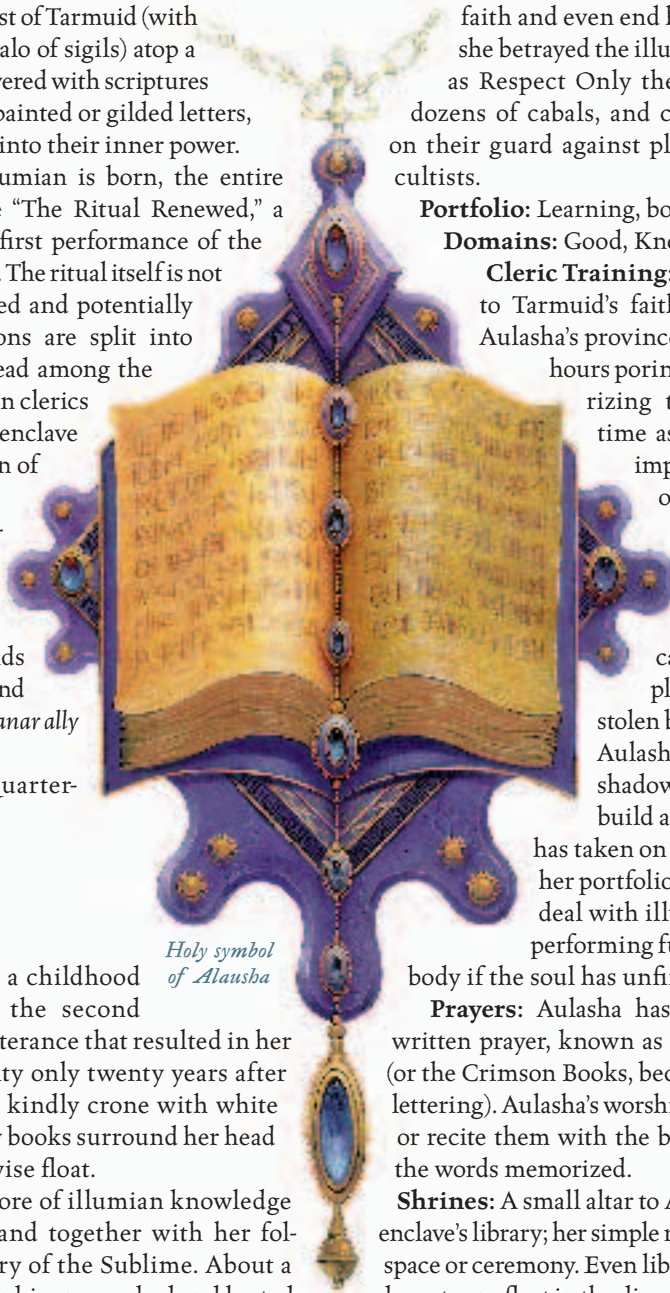 st of Tarmuid (with
alo of sigils) atop a
vered with scriptures
painted or gilded letters,
into their inner power.
umian is born, the entire
“The Ritual Renewed,” a
first performance of the
. The ritual itself is not
ed and potentially
ons are split into
ead among the
n clerics
enclave
n of
-
ds
nd
anar ally
uarter-
a childhood
the second
terance that resulted in her
ty only twenty years after
kindly crone with white
books surround her head
wise float.
ore of illumian knowledge
and together with her fol-
ry of the Sublime. About a
Holy symbol
of Alausha
faith and even end
she betrayed the illu
as Respect Only the
dozens of cabals, and c
on their guard against pl
cultists.
Portfolio: Learning, bo
Domains: Good, Kn
Cleric Training:
to Tarmuid’s fait
Aulasha’s province
hours porin
rizing t
time as
imp
o
ca
pl
stolen b
Aulash
shadow
build a
has taken on
her portfolio
deal with ill
performing fu
body if the soul has unfi
Prayers: Aulasha has
written prayer, known as
(or the Crimson Books, bec
lettering). Aulasha’s worsh
or recite them with the b
the words memorized.
Shrines: A small altar to A
enclave’s library; her simple
space or ceremony. Even lib